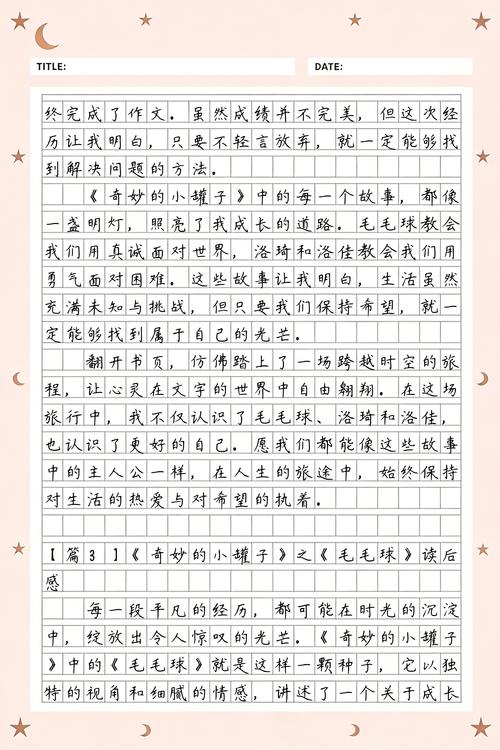 TITLE:
DATE:
终完成了作文。虽然成绩并不完美，但这次经
历让我明白，只要不轻言放弃，就一定能够找
到解决问题的方法。
《奇妙的小罐子》中的每一个故事，都像
一盏明灯，照亮了我成长的道路。毛毛球教会
我们用真诚面对世界，洛琦和洛佳教会我们用
勇气面对困难。这些故事让我明白，生活虽然
充满未知与挑战，但只要我们保持希望，就一
定能够找到属于自己的光芒。
翻开书页，仿佛踏上了一场跨越时空的旅
程，让心灵在文字的世界中自由翱翔。在这场
旅行中，我不仅认识了毛毛球、洛琦和洛佳，
也认识了更好的自己。愿我们都能像这些故事
中的主人公一样，在人生的旅途中，始终保持
对生活的热爱与对希望的执着。
【篇3】《奇妙的小罐子》之《毛毛球》读后
感
每一段平凡的经历，都可能在时光的沉淀
中，绽放出令人惊叹的光芒。《奇妙的小罐子
》中的《毛毛球》就是这样一颗种子，它以独
特的视角和细腻的情感，讲述了一个关于成长